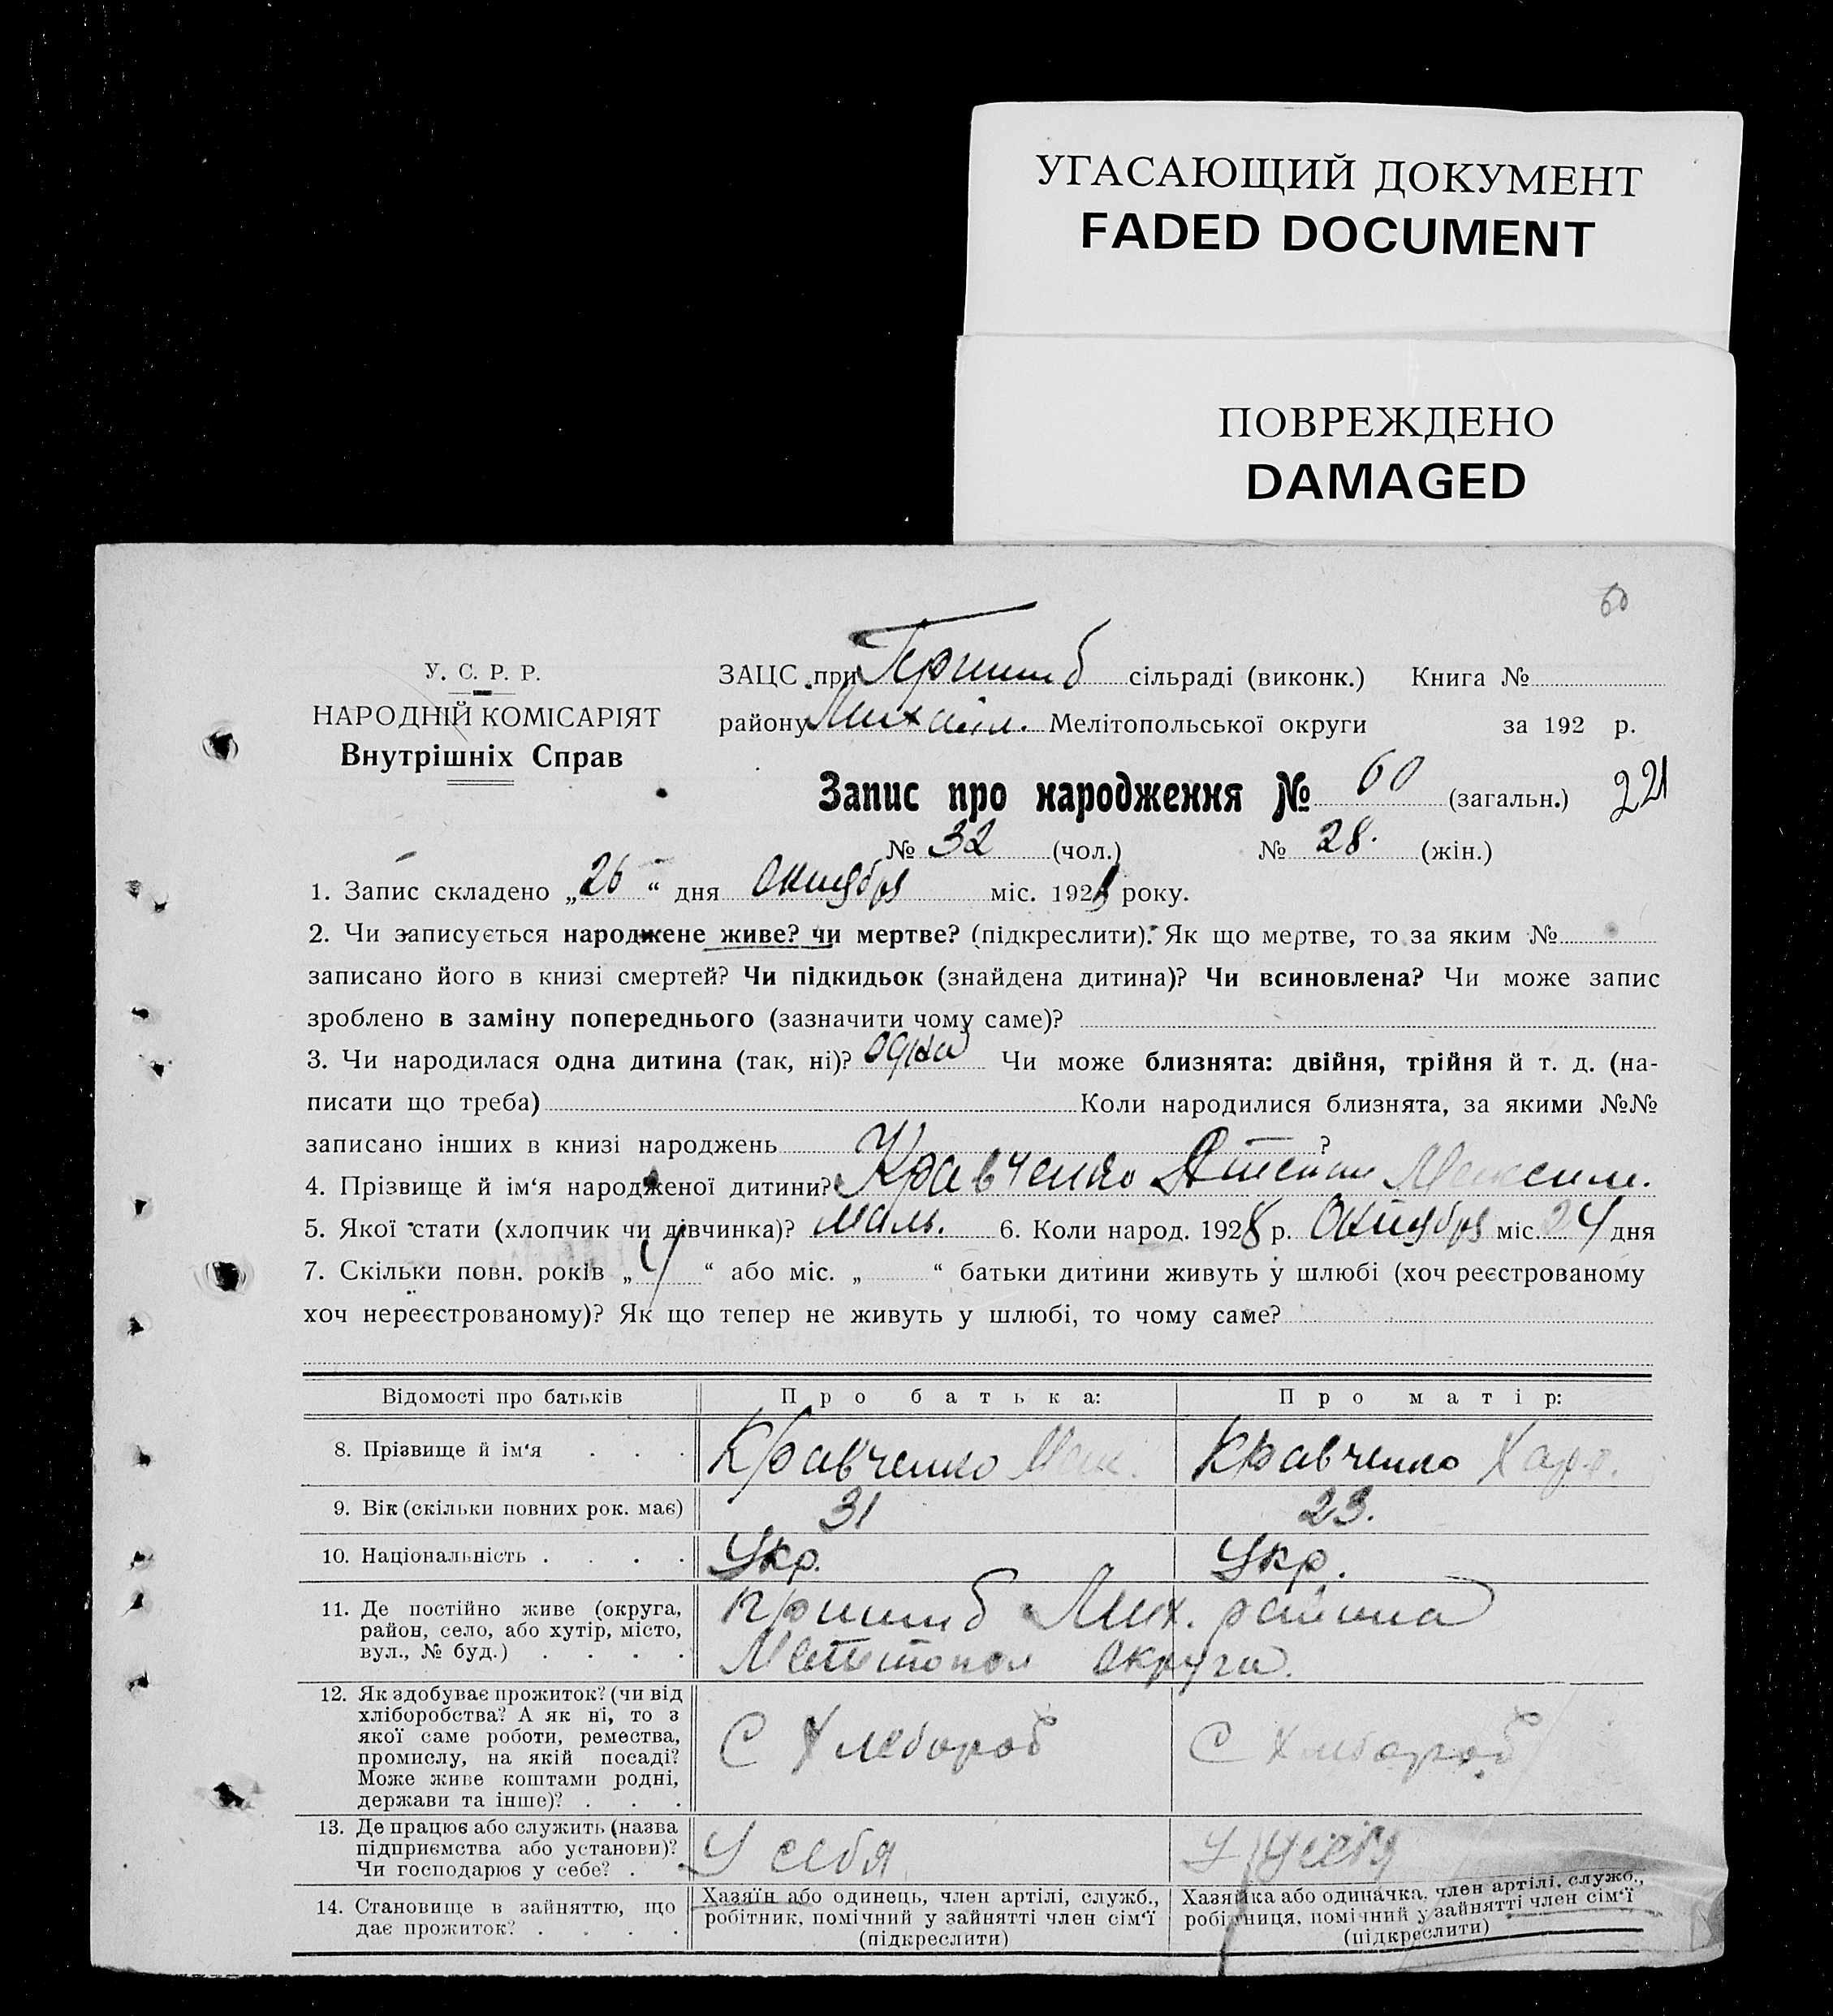 УГАСАЮЩИЙ ДОКУМЕНТ
FADED DOCUMENT
ПОВРЕЖДЕНО
DAMAGED
60
У. С. Р. Р.
НАРОДНІЙ КОМІСАРІЯТ
Внутрішніх Справ
ЗАЦС при сільраді (виконк.) Книга №
району Михайл. Мелітопольської округи за 192 р.
Запис про народження № 60 (загальн.) 221
№ 32 (чол.) № 28. (жін.)
1. Запис складено „26“ дня Октября міс. 1928 року.
2. Чи записується народжене живе? чи мертве? (підкреслити). Як що мертве, то за яким №
записано його в книзі смертей? Чи підкидьок (знайдена дитина)? Чи всиновлена? Чи може запис
зроблено в заміну попереднього (зазначити чому саме)?
3. Чи народилася одна дитина (так, ні)? одна Чи може близнята: двійня, трійня й т. д. (на-
писати що треба) Коли народилися близнята, за якими №№
записано інших в книзі народжень ?
4. Прізвище й ім‘я народженої дитини? Кравченко Максим.
5. Якої стати (хлопчик чи дівчинка)? маль. 6. Коли народ. 1928 р. Октября міс. 24 дня
7. Скільки повн. років „4“ або міс. „ “ батьки дитини живуть у шлюбі (хоч реєстрованому
хоч нереєстрованому)? Як що тепер не живуть у шлюбі, то чому саме?
Відомості про батьків Про батька: Про матір:
8. Прізвище й ім‘я Кравченко Мак. Кравченко
9. Вік (скільки повних рок. має) 31 23.
10. Національність Укр. Укр.
11. Де постійно живе (округа, район, село, або хутір, місто, вул., № буд.)
Пришиб Мих. района
Мелитопол округа.
12. Як здобуває прожиток? (чи від хліборобства? А як ні, то з якої саме роботи, ремества, промислу, на якій посаді? Може живе коштами родні, держави та інше)?
С Хлебороб С Хлебороб
13. Де працює або служить (назва підприємства або установи)? Чи господарює у себе?
У себя
14. Становище в зайняттю, що дає прожиток?
Хазяїн або одинець, член артілі, служб., робітник, помічний у зайнятті член сім‘ї (підкреслити)
Хазяйка або одиначка, член артілі, служб., робітниця, помічний у зайнятті член сім‘ї (підкреслити)